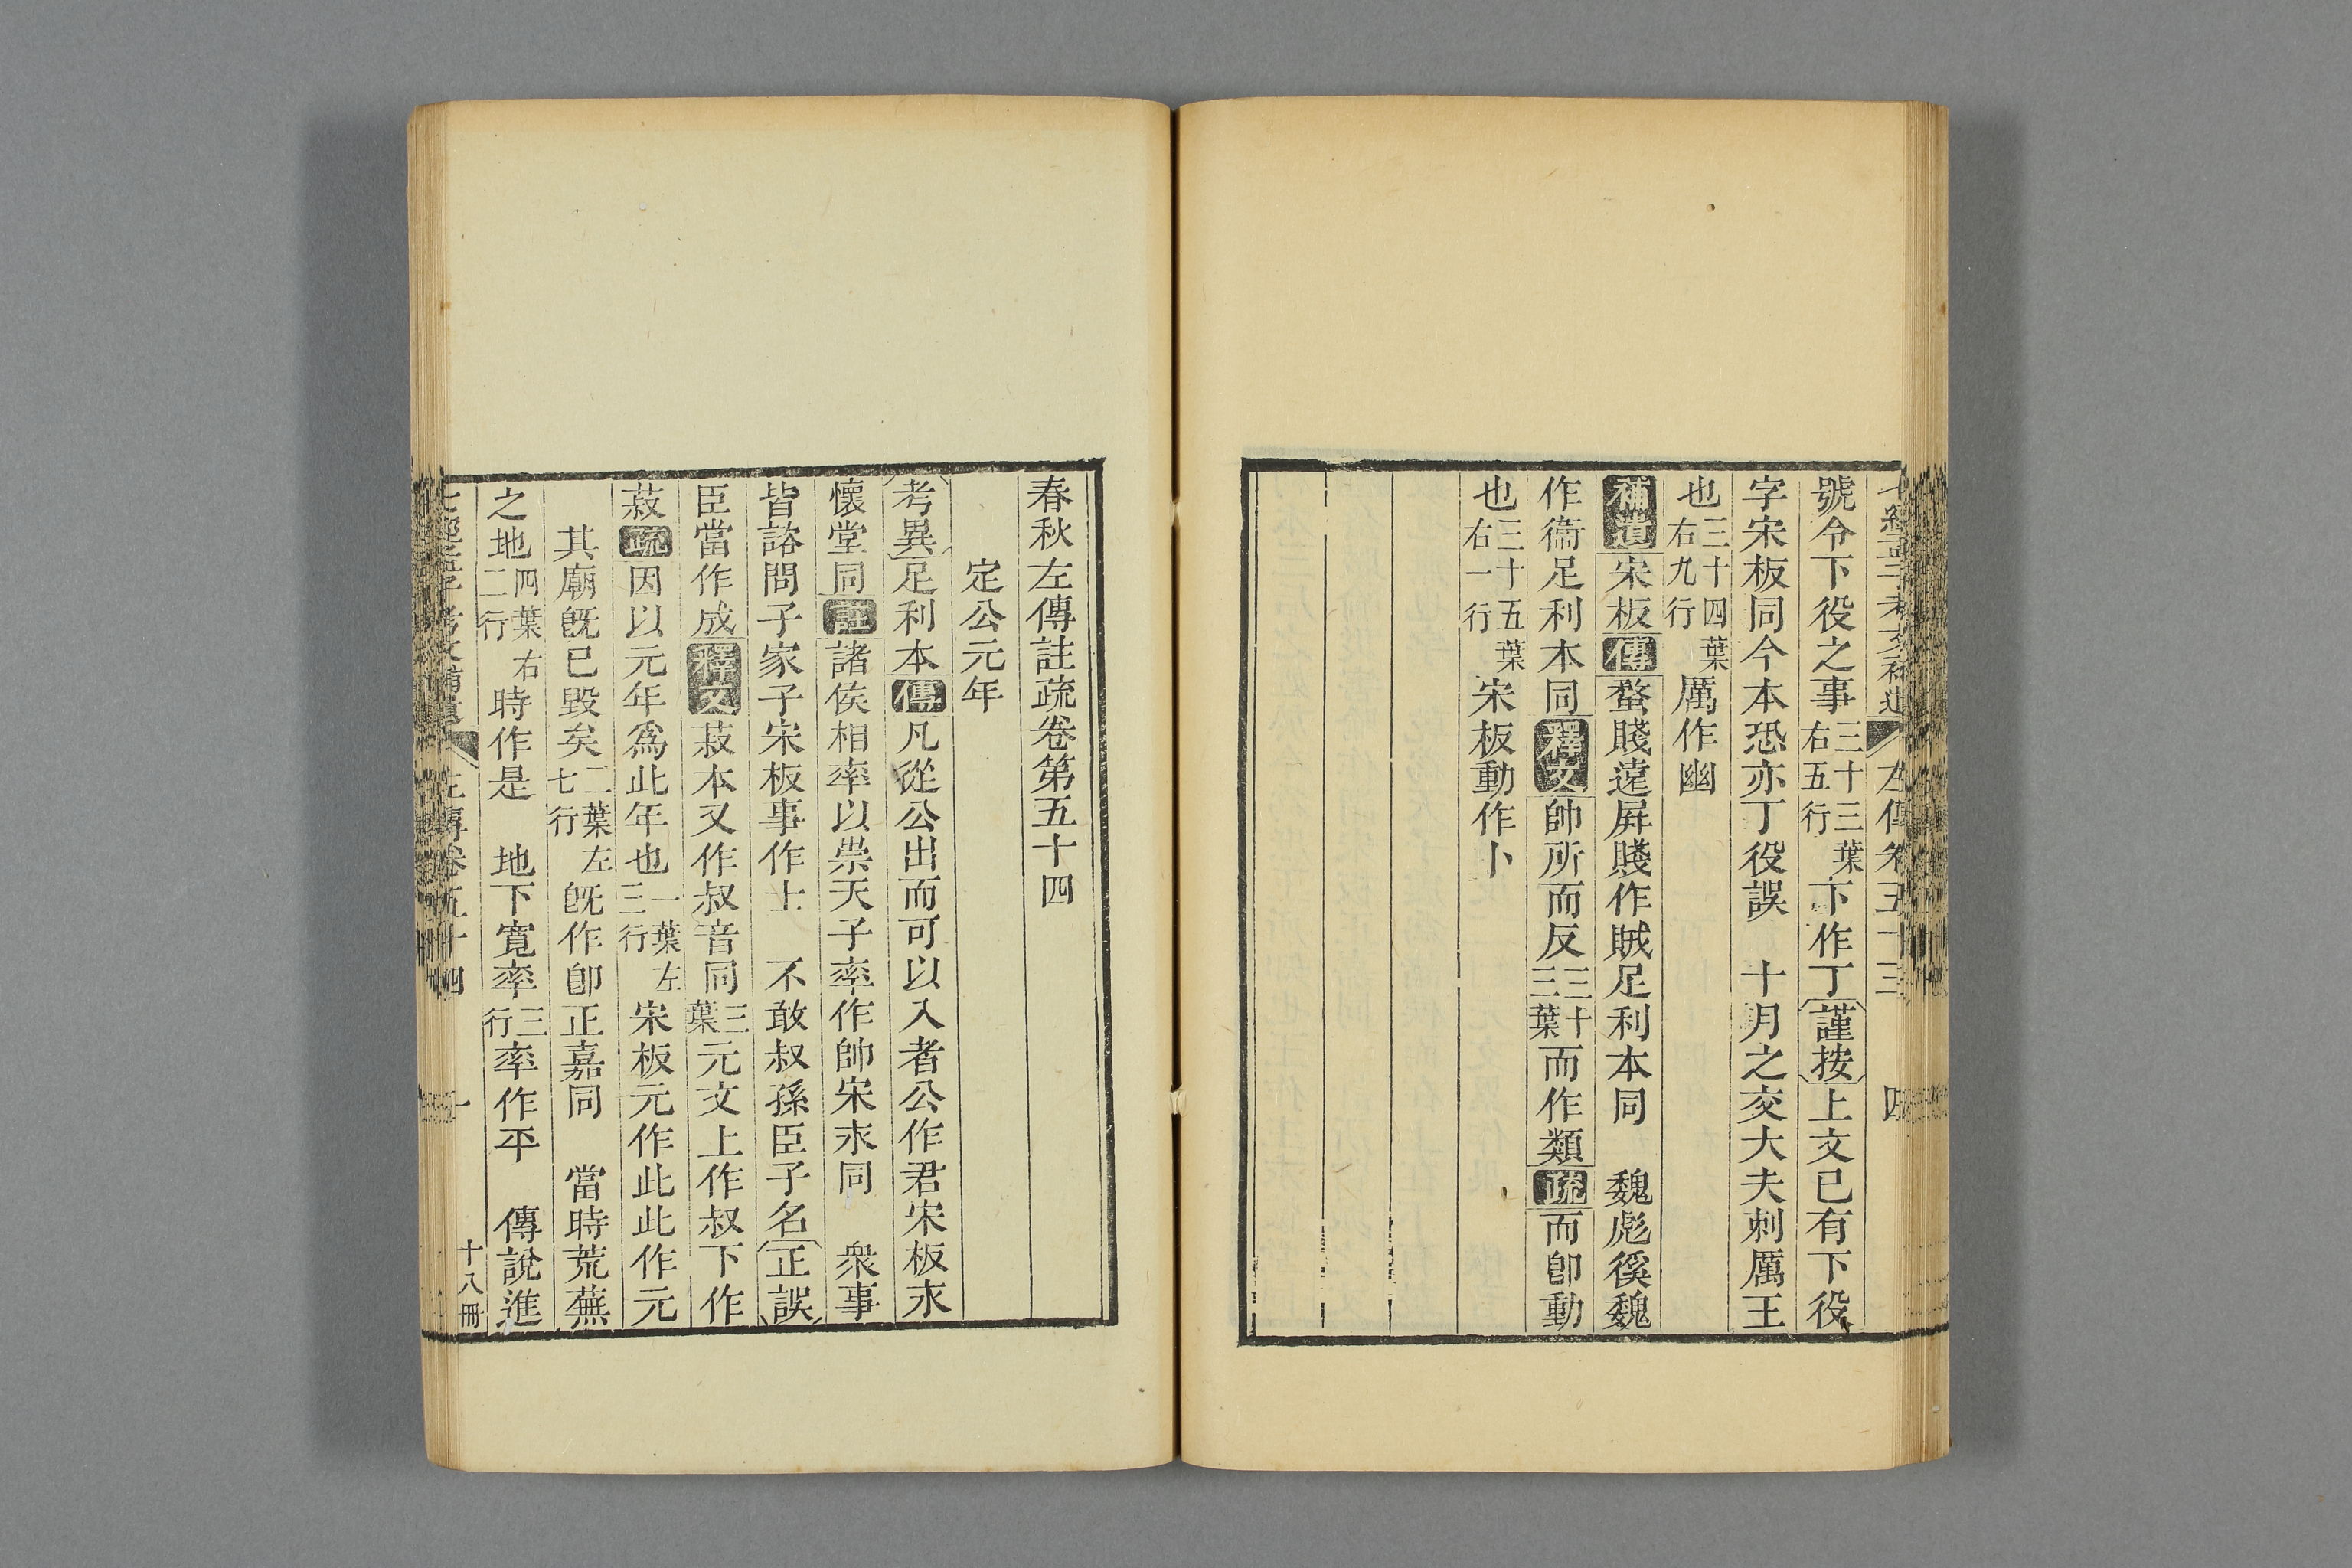 號令下役之事三十三葉右五行下作丁謹按上文已有下役
字宋板同今本恐亦丁役誤　十月之交大夫刺厲王
也三十四葉右九行厲作幽
補遺宋板傳蝥賤遠屛賤作賊足利本同　魏彪徯魏
作衞足利本同釋文帥所而反三十三葉而作類疏而卽動
也三十五葉右一行宋板動作卜
春秋左傳註疏卷第五十四
定公元年
考異足利本傳凡從公出而可以入者公作君宋板永
懷堂同註諸侯相率以祟天子率作帥宋永同　衆事
皆諮問子家子宋板事作士　不敢叔孫臣子名正誤
臣當作成釋文菽本又作叔音同三葉元文上作叔下作
菽疏因以元年爲此年也一葉左三行宋板元作此此作元
其廟旣已毀矣二葉左七行旣作卽正嘉同　當時荒蕪
之地四葉右二行時作是　地下寬率三行率作平　傳說進
七經孟子考文補遺　左傳卷五十四　一　十八冊